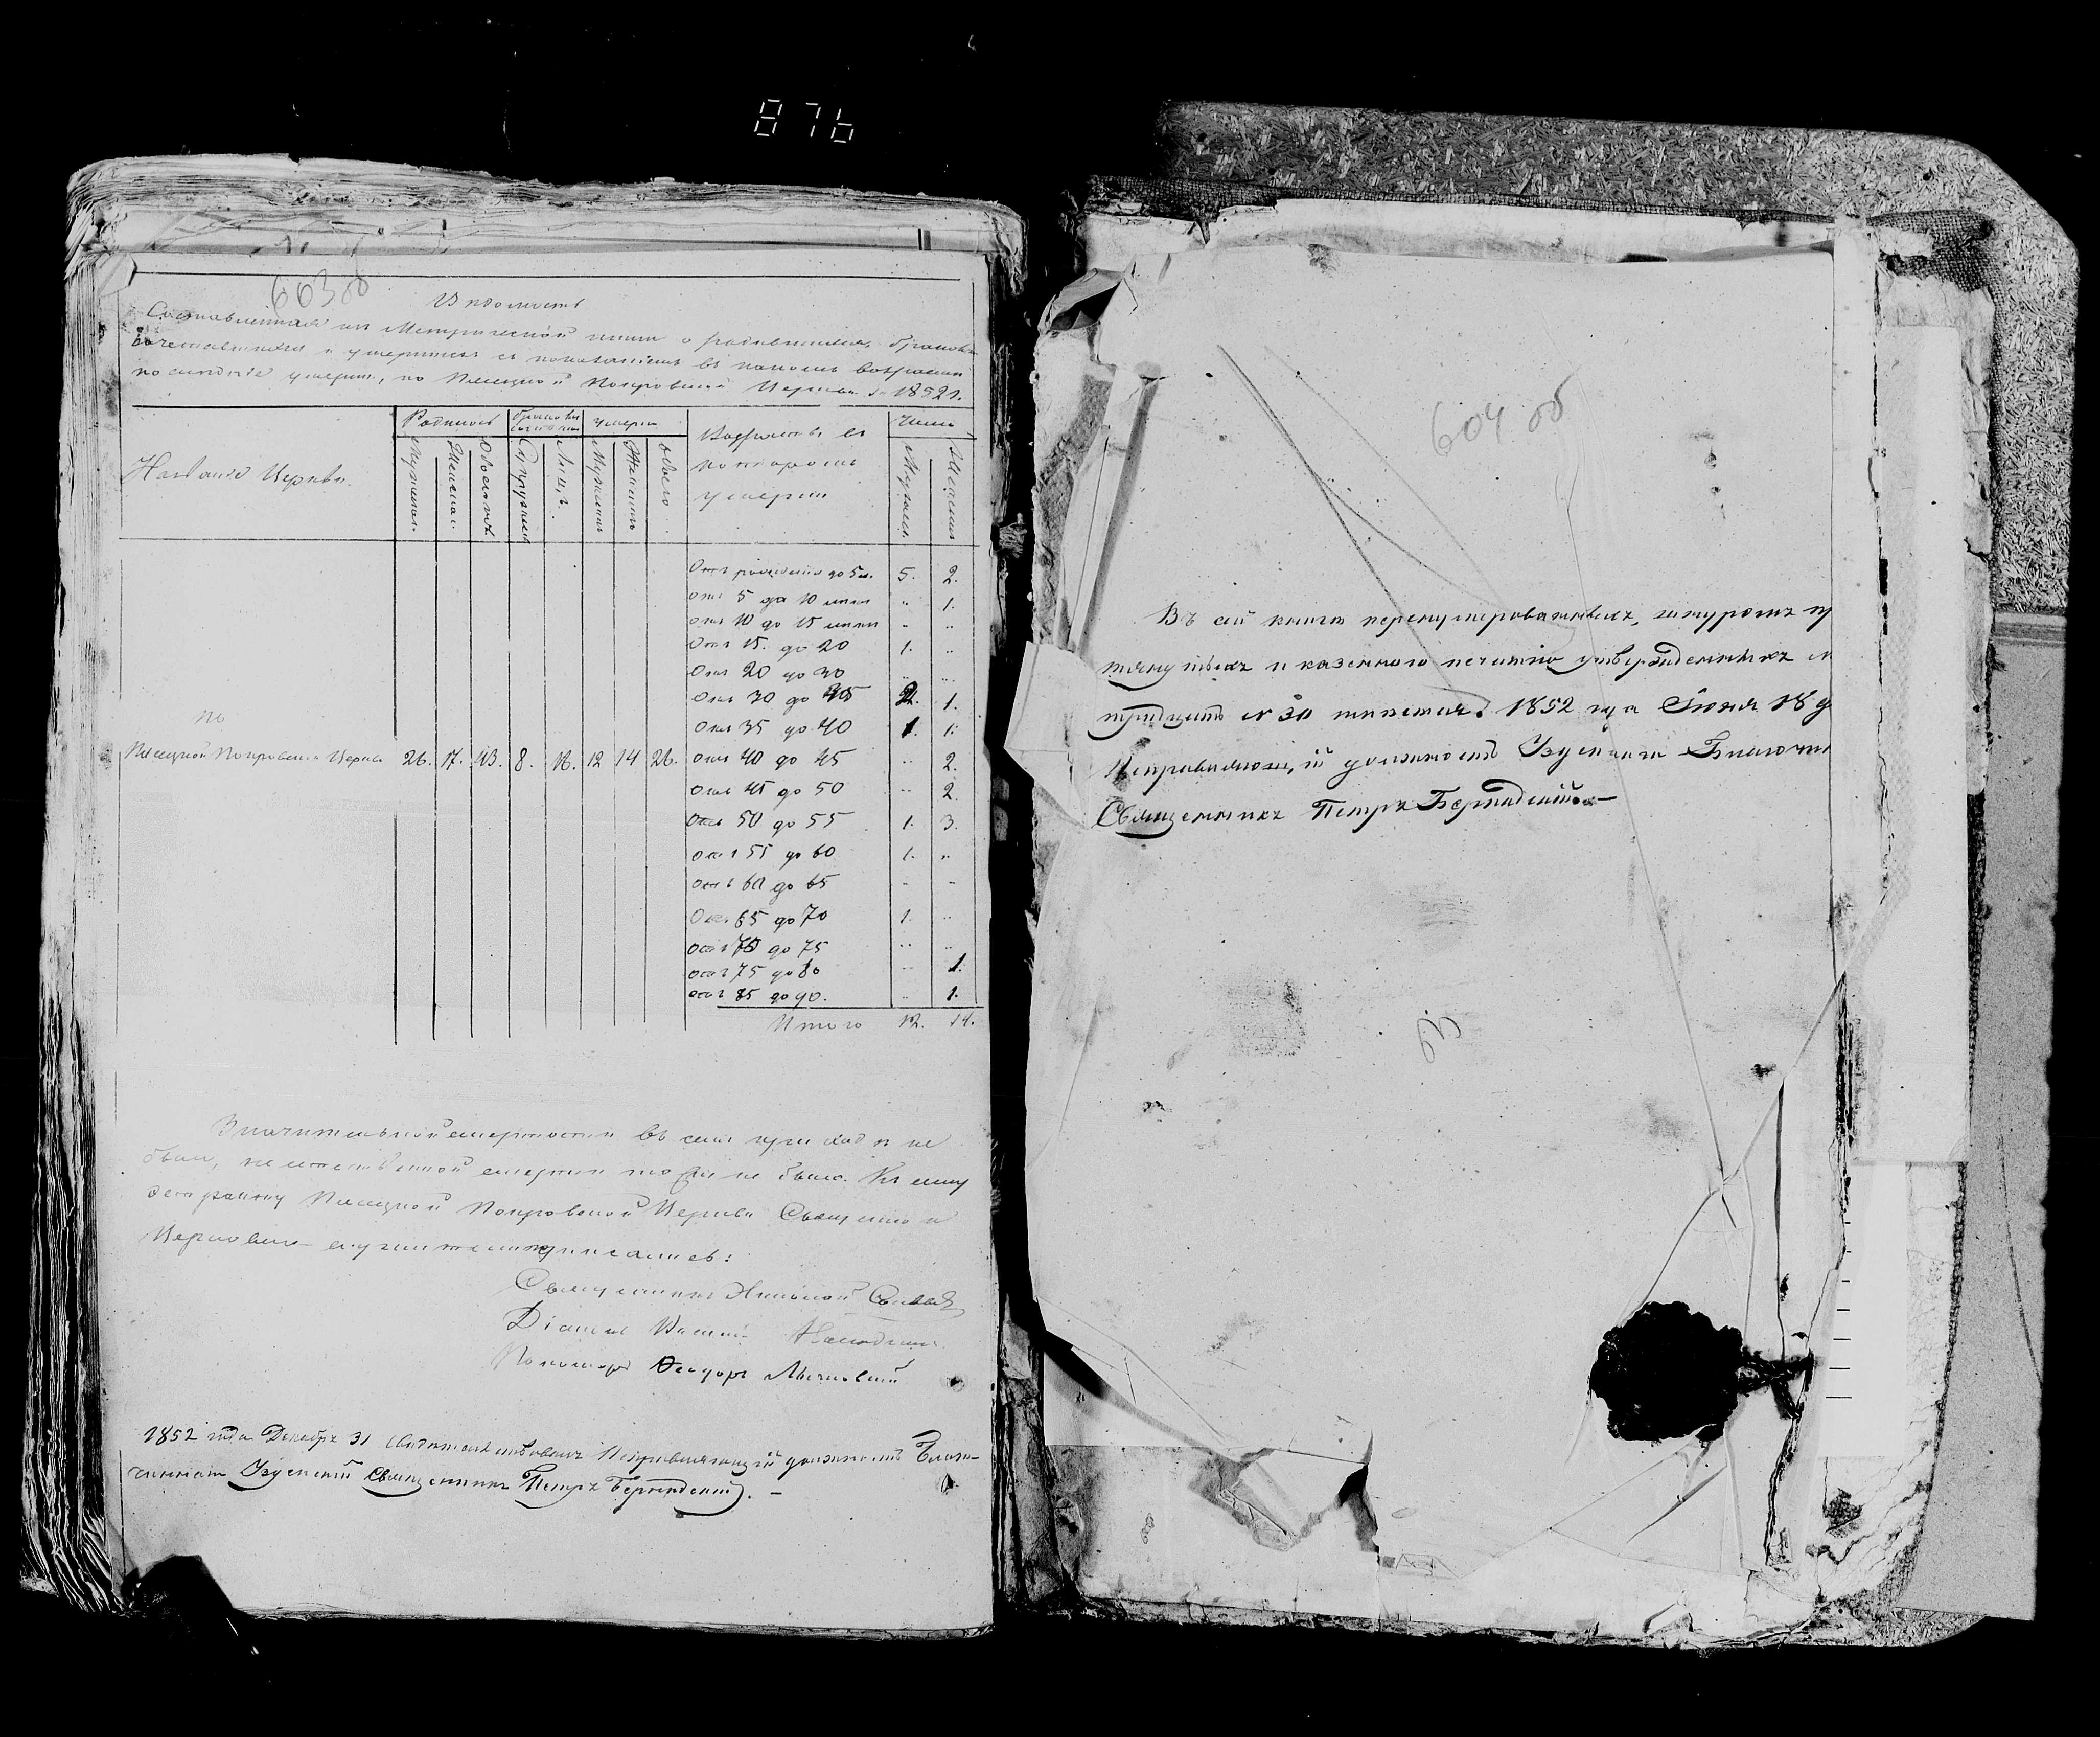 876
603 об
Ведомость
Составленная изъ Метрической книги о родившихся, бракомъ
сочетавшихся и умершихъ съ показаніемъ въ какомъ возрасте
умерли, по Плесецкой Покровской Церкви 1852 г.
Название Церкви.
Родилось
Мужеска.
Женска.
Обоего
бракомъ сочетались
Супружествъ
Лицъ.
Умерло
Мужеска
Женска
Обоего
Возрастъ, въ
которомъ
умерли
Число
Мужеска.
Женска
Отъ рожденія до 5 л. 5. 2.
отъ 5 до 10 летъ " 1.
отъ 10 до 15 летъ " "
Отъ 15. до 20 1. "
Отъ 20 до 30 " "
Отъ 30 до 35 2. 1.
Отъ 35 до 40 1. 1.
По
Плесецкой Покровской Церкви 26. 17. 43. 8. 16. 12 14 26. отъ 40 до 45 " 2.
отъ 45 до 50 " 2.
Отъ 50 до 55 1. 3.
отъ 55 до 60 1. "
отъ 60 до 65 " "
Отъ 65 до 70 1. "
отъ 70 до 75 " "
отъ 75 до 80 " 1.
отъ 85 до 90. " 1.
Итого 12. 14.
Значительной смертности въ семъ приходе не
было, неестественной смерти тоже не было. Къ сему
Плесецкой Покровской Церкви Священно и
Церковно-служители подписались:
Священникъ Николай
Діаконъ
Пономарь Феодоръ
1852 года Декабря 31 свидетельствовалъ Исправляющій должность Благо-
чиннаго Священникъ Петръ
604 об
Въ сей книге перенумерованныхъ, шнуромъ
тянутыхъ и казенною печатью утвержденныхъ
тридцать № 30 листовъ. 1852 года Июня 18
Исправляющій должность
Священникъ Петръ